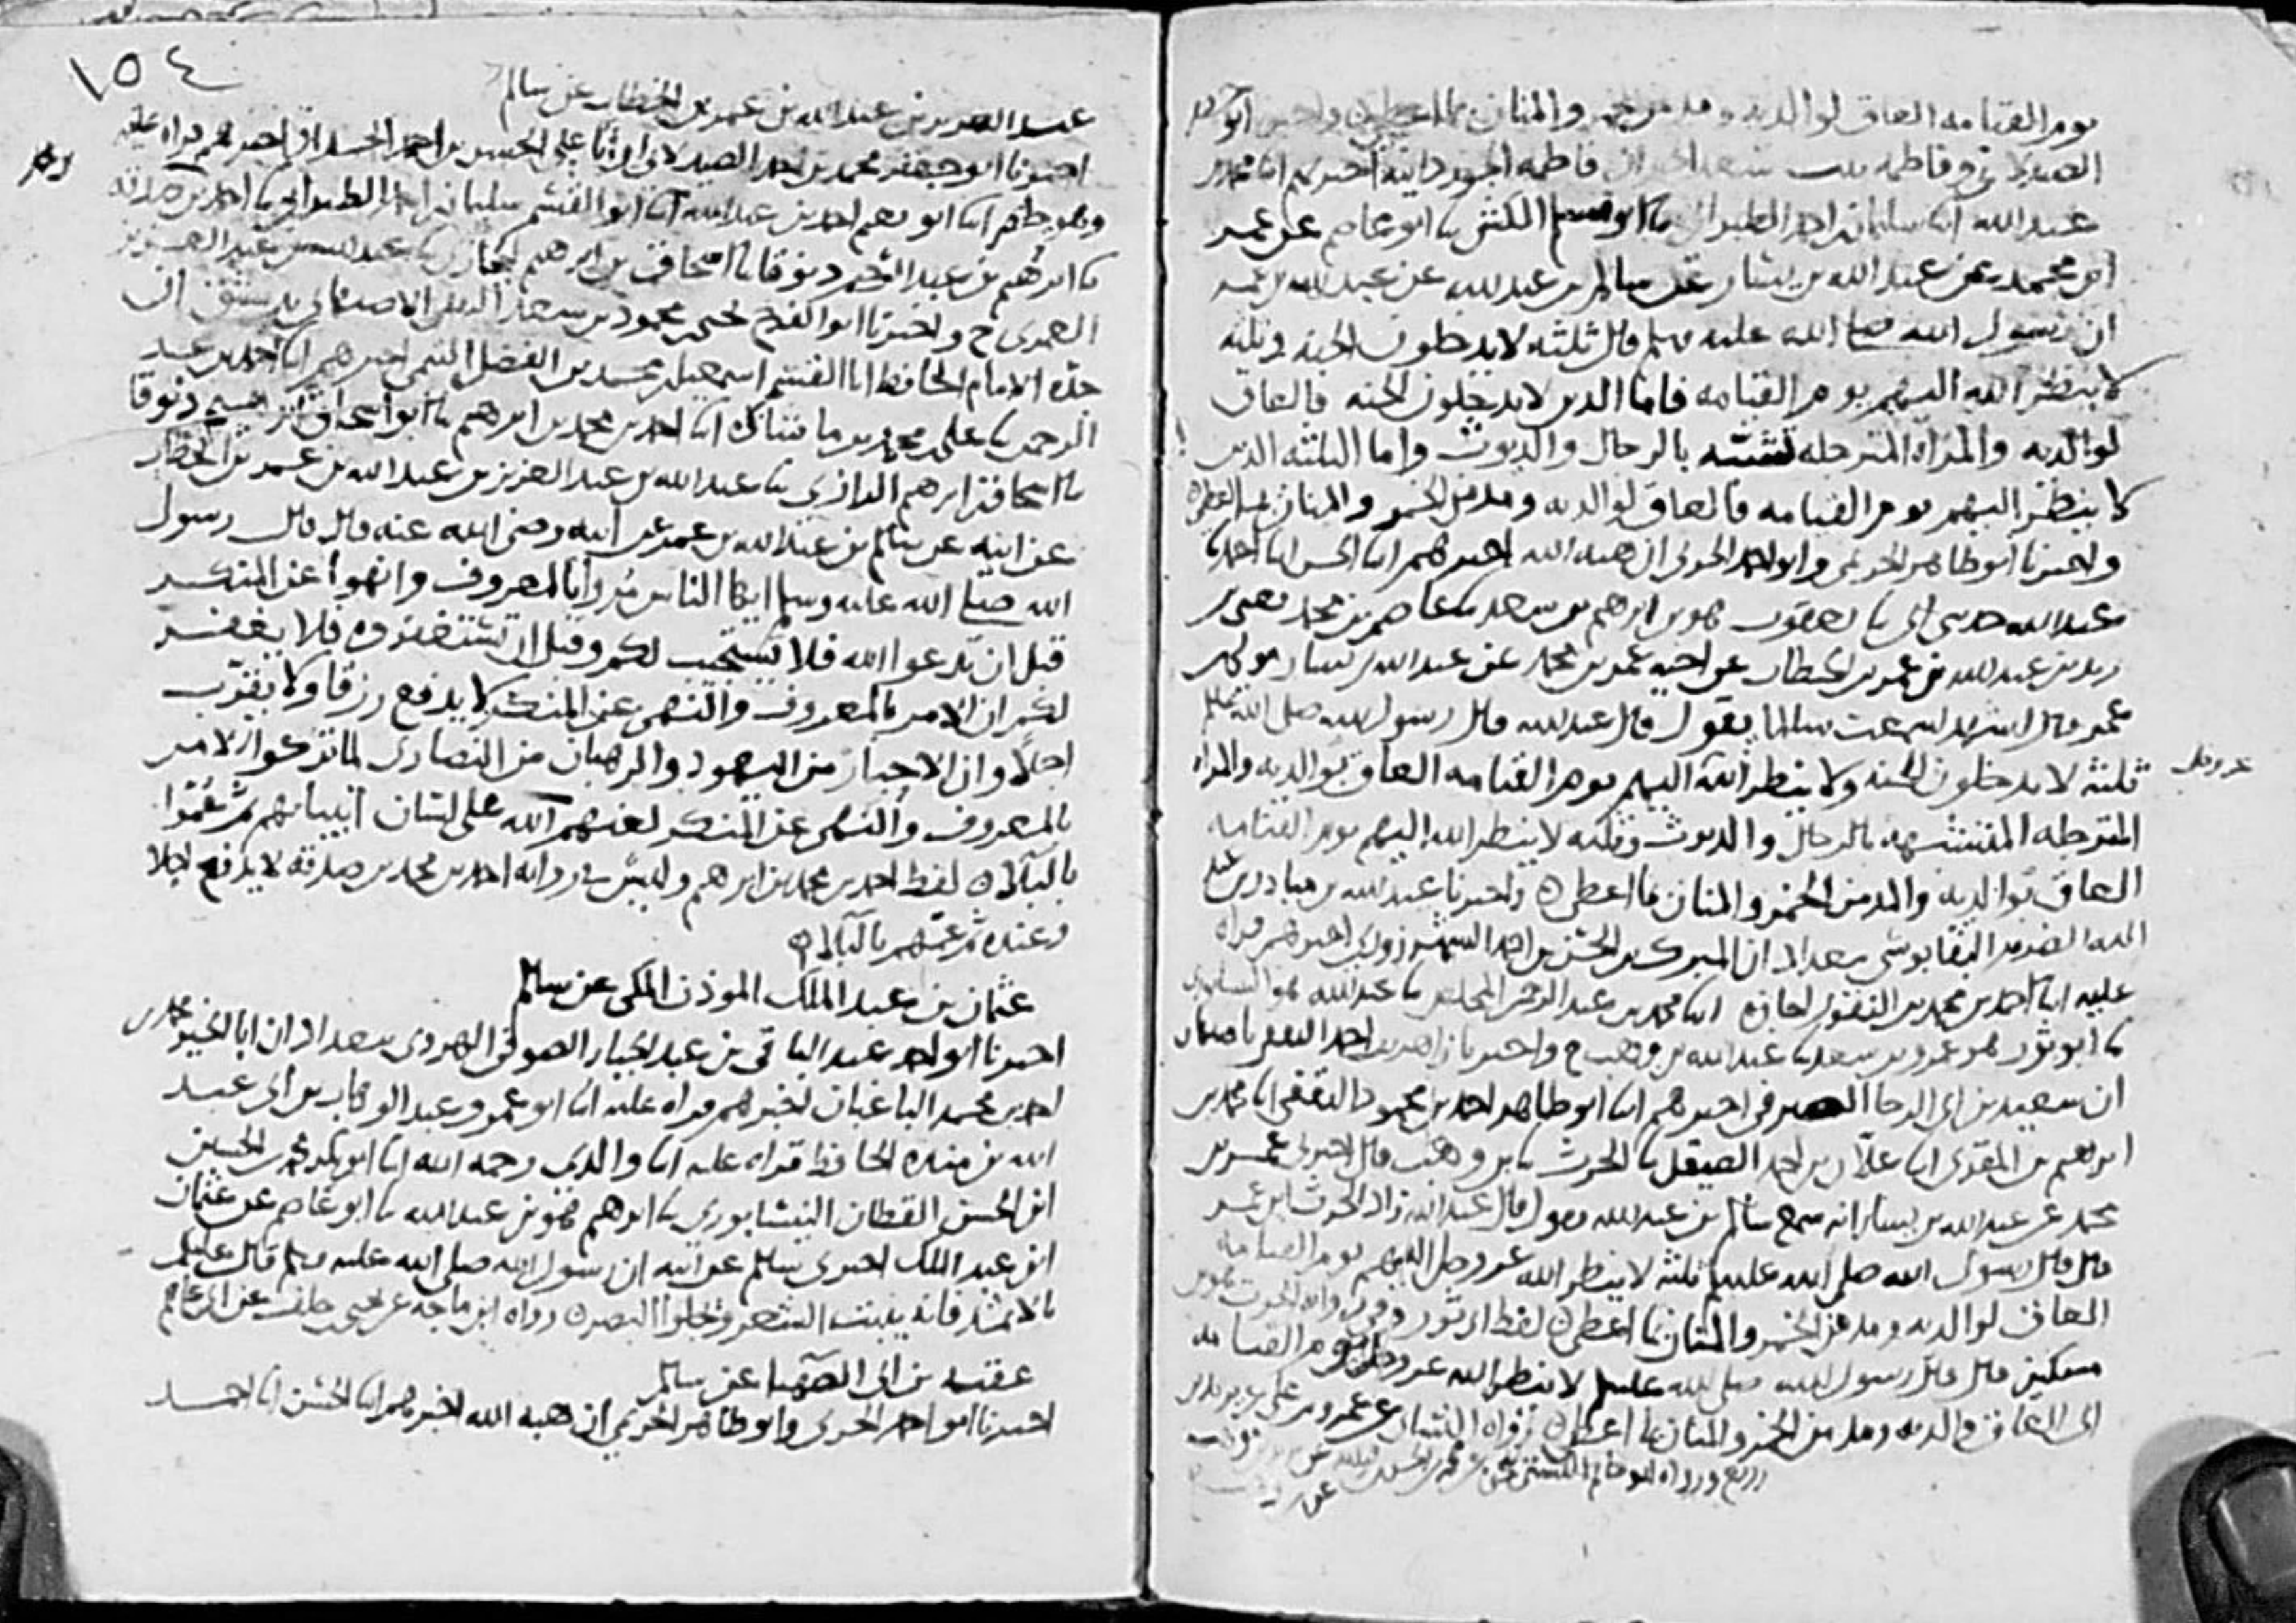 يوم القيامه العاق لوالديه ومدمن الخمر والمنان بما اعطى واخبرنا ابو جعفر
الصيدلاني وفاطمه بنت سعد الخير ان فاطمه الجوزدانيه اخبرتهم انا محمد بن
عبد الله انا سليمان بن احمد الطبراني نا ابو مسلم الكشي نا ابو عاصم عن عمر
ابن محمد عن عبد الله بن يسار عن سالم بن عبد الله عن عبد الله بن عمر
ان رسول الله صلى الله عليه وسلم قال ثلثه لا يدخلون الجنه وثلثه
لا ينظر الله اليهم يوم القيامه فاما الذين لا يدخلون الجنه فالعاق
لوالديه والمراه المترجله تشبه بالرجال والديوث واما الثلثه الذين
لا ينظر اليهم يوم القيامه فالعاق لوالديه ومدمن الخمر والمنان بما اعطى
واخبرنا ابو طاهر الحريمي وابو احمد الحربي ان هبه الله اخبرهم انا الحسن انا احمد نا
عبد الله حدثني ابي نا يعقوب هو بن ابرهيم بن سعد نا عاصم بن محمد يعني بن
زيد بن عبد الله بن عمر بن الخطاب عن اخيه عمر بن محمد عن عبد الله بن يسار مولى بن
عمر قال اشهد لسمعت سالما يقول قال عبد الله قال رسول الله صلى الله عليه وسلم
ثلثه لا يدخلون الجنه ولا ينظر الله اليهم يوم القيامه العاق بوالديه والمراه
عز وجل
المترجله المتشبهه بالرجال والديوث وثلثه لا ينظر الله اليهم يوم القيامه
العاق بوالديه والمدمن الخمر والمنان بما اعطى واخبرنا عبد الله بن
ببغداد ان المبرك بن الحسن بن احمد الشهرزوري اخبرهم قراه
عليه انا احمد بن محمد بن النقور اجازه انا محمد بن عبد الرحمن المخلص نا عبد الله هو
نا ابو ثور هو عمرو بن سعد نا عبد الله بن وهب ح واخبرنا زاهر بن احمد الثقفي باصبهان
ان سعيد بن ابي الرجا الصيرفي اخبرهم انا ابو طاهر احمد بن محمود الثقفي انا محمد بن
ابرهيم بن المقرئ انا علان بن احمد الصيقل نا الحرث نا بن وهب قال اخبرني عمر بن
محمد عن عبد الله بن يسار انه سمع سالم بن عبد الله يقول قال عبد الله زاد الحرث ابن عمر
قال قال رسول الله صلى الله عليه وسلم ثلثه لا ينظر الله عز وجل اليهم يوم القيامه
العاق لوالديه ومدمن الخمر والمنان بما اعطى لفظ ابي ثور وفي روايه الحرث هو بن
مسكين قال قال رسول الله صلى الله عليه وسلم لا ينظر الله عز وجل يوم القيامه
الى العاق والديه ومدمن الخمر والمنان بما اعطى رواه النسائي عن عمرو بن علي عن يزيد بن
زريع ورواه ابو حاتم البستي
عن
١٥٤
عبد الله بن عبد العزيز بن عبد الله بن عمر بن الخطاب عن سالم
اخبرنا ابو جعفر محمد بن احمد الصيدلاني ان ابا علي الحسن بن احمد الحداد اخبرهم قراه عليه
وهو حاضر انا ابو نعيم احمد بن عبد الله انا ابو القسم سليمان بن احمد الطبراني نا احمد بن صدقه
نا ابرهيم بن عبد الرحمن دنوقا نا اسحاق بن ابرهيم نا عبد الله بن عبد العزيز
العمري ح واخبرنا ابو الفرج يحيى بن محمود بن سعد الثقفي الاصبهاني بدمشق ان
جده الامام الحافظ ابا القسم اسمعيل بن محمد بن الفضل التيمي اخبرهم انا احمد بن عبد
الرحمن نا علي بن محمد بن ماشاذه انا احمد بن محمد بن ابرهيم نا ابو اسحاق ابرهيم دنوقا
نا اسحاق بن ابرهيم الرازي نا عبد الله بن عبد العزيز بن عبد الله بن عمر بن الخطاب
عن ابيه عن سالم بن عبد الله بن عمر عن ابيه رضي الله عنه قال قال رسول
الله صلى الله عليه وسلم ايها الناس مروا بالمعروف وانهوا عن المنكر
قبل ان تدعوا الله فلا يستجيب لكم وقبل ان تستغفروه فلا يغفر
لكم ان الامر بالمعروف والنهي عن المنكر لا يدفع رزقا ولا يقرب
اجلا وان الاحبار من اليهود والرهبان من النصارى لما تركوا الامر
بالمعروف والنهي عن المنكر لعنهم الله على لسان انبيائهم ثم عموا
بالبلاء لفظ احمد بن محمد بن ابرهيم وليس في روايه احمد بن محمد بن صدقه لا يدفع اجلا
وعنده ثم عمهم بالبلاء
عثمان بن عبد الملك الموذن المكي عن سالم
اخبرنا ابو احمد عبد الباقي بن عبد الجبار الصوفي الهروي ببغداد ان ابا الخير محمد بن
احمد بن محمد الباغبان اخبرهم قراه عليه انا ابو عمرو عبد الوهاب بن ابي عبد
الله بن منده الحافظ قراه عليه انا والدي رحمه الله انا ابو بكر محمد بن الحسين
ابن الحسن القطان النيسابوري نا ابرهيم هو بن عبد الله نا ابو عاصم عن عثمان
ابن عبد الملك اخبرني سالم عن ابيه ان رسول الله صلى الله عليه وسلم قال عليكم
بالاثمد فانه ينبت الشعر ويجلوا البصر رواه ابن ماجه عن يحيى بن خلف عن ابي عاصم
عقبه بن ابي الصهبا عن سالم
اخبرنا ابو احمد الحربي وابو طاهر الحريمي ان هبه الله اخبرهم انا الحسن انا احمد